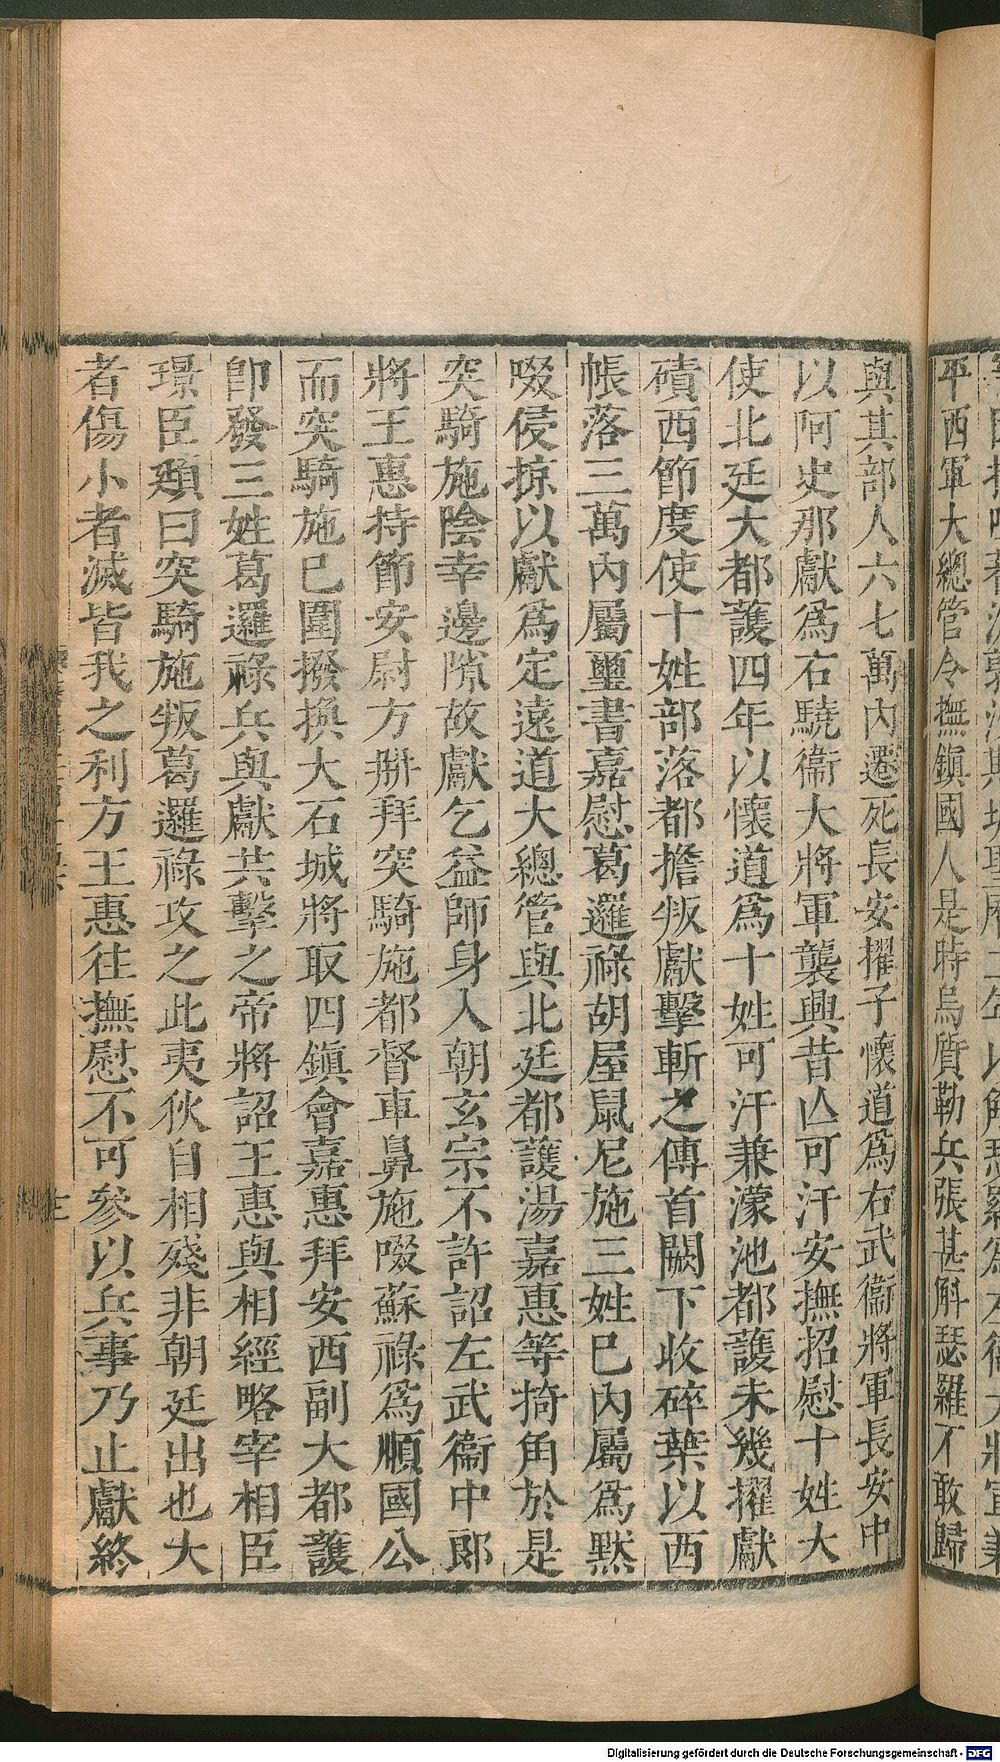 平西軍大總管令撫鎮國人是時烏質勒兵張甚斛瑟羅不敢歸
與其部人六七萬內遷死長安擢子懷道爲右武衞將軍長安中
以阿史那獻爲右驍衞大將軍襲興昔亾可汗安撫招慰十姓大
使北廷大都護四年以懷道爲十姓可汗兼濛池都護未幾擢獻
磧西節度使十姓部落都擔叛獻擊斬之傳首闕下收碎葉以西
帳落三萬內屬璽書嘉慰葛邏祿胡屋鼠尼施三姓巳內屬爲默
啜侵掠以獻爲定遠道大總管與北廷都護湯嘉惠等掎角於是
突騎施陰幸邊隙故獻乞益師身入朝玄宗不許詔左武衞中郎
將王惠持節安尉方冊拜突騎施都督車鼻施啜蘇祿爲順國公
而突騎施巳圍撥換大石城將取四鎮會嘉惠拜安西副大都護
卽發三姓葛邏祿兵與獻共擊之帝將詔王惠與相經略宰相臣
璟臣頲曰突騎施叛葛邏祿攻之此夷狄自相殘非朝廷出也大
者傷小者滅皆我之利方王惠往撫慰不可參以兵事乃止獻終
Digitalisierung gefördert durch die Deutsche Forschungsgemeinschaft - DFG